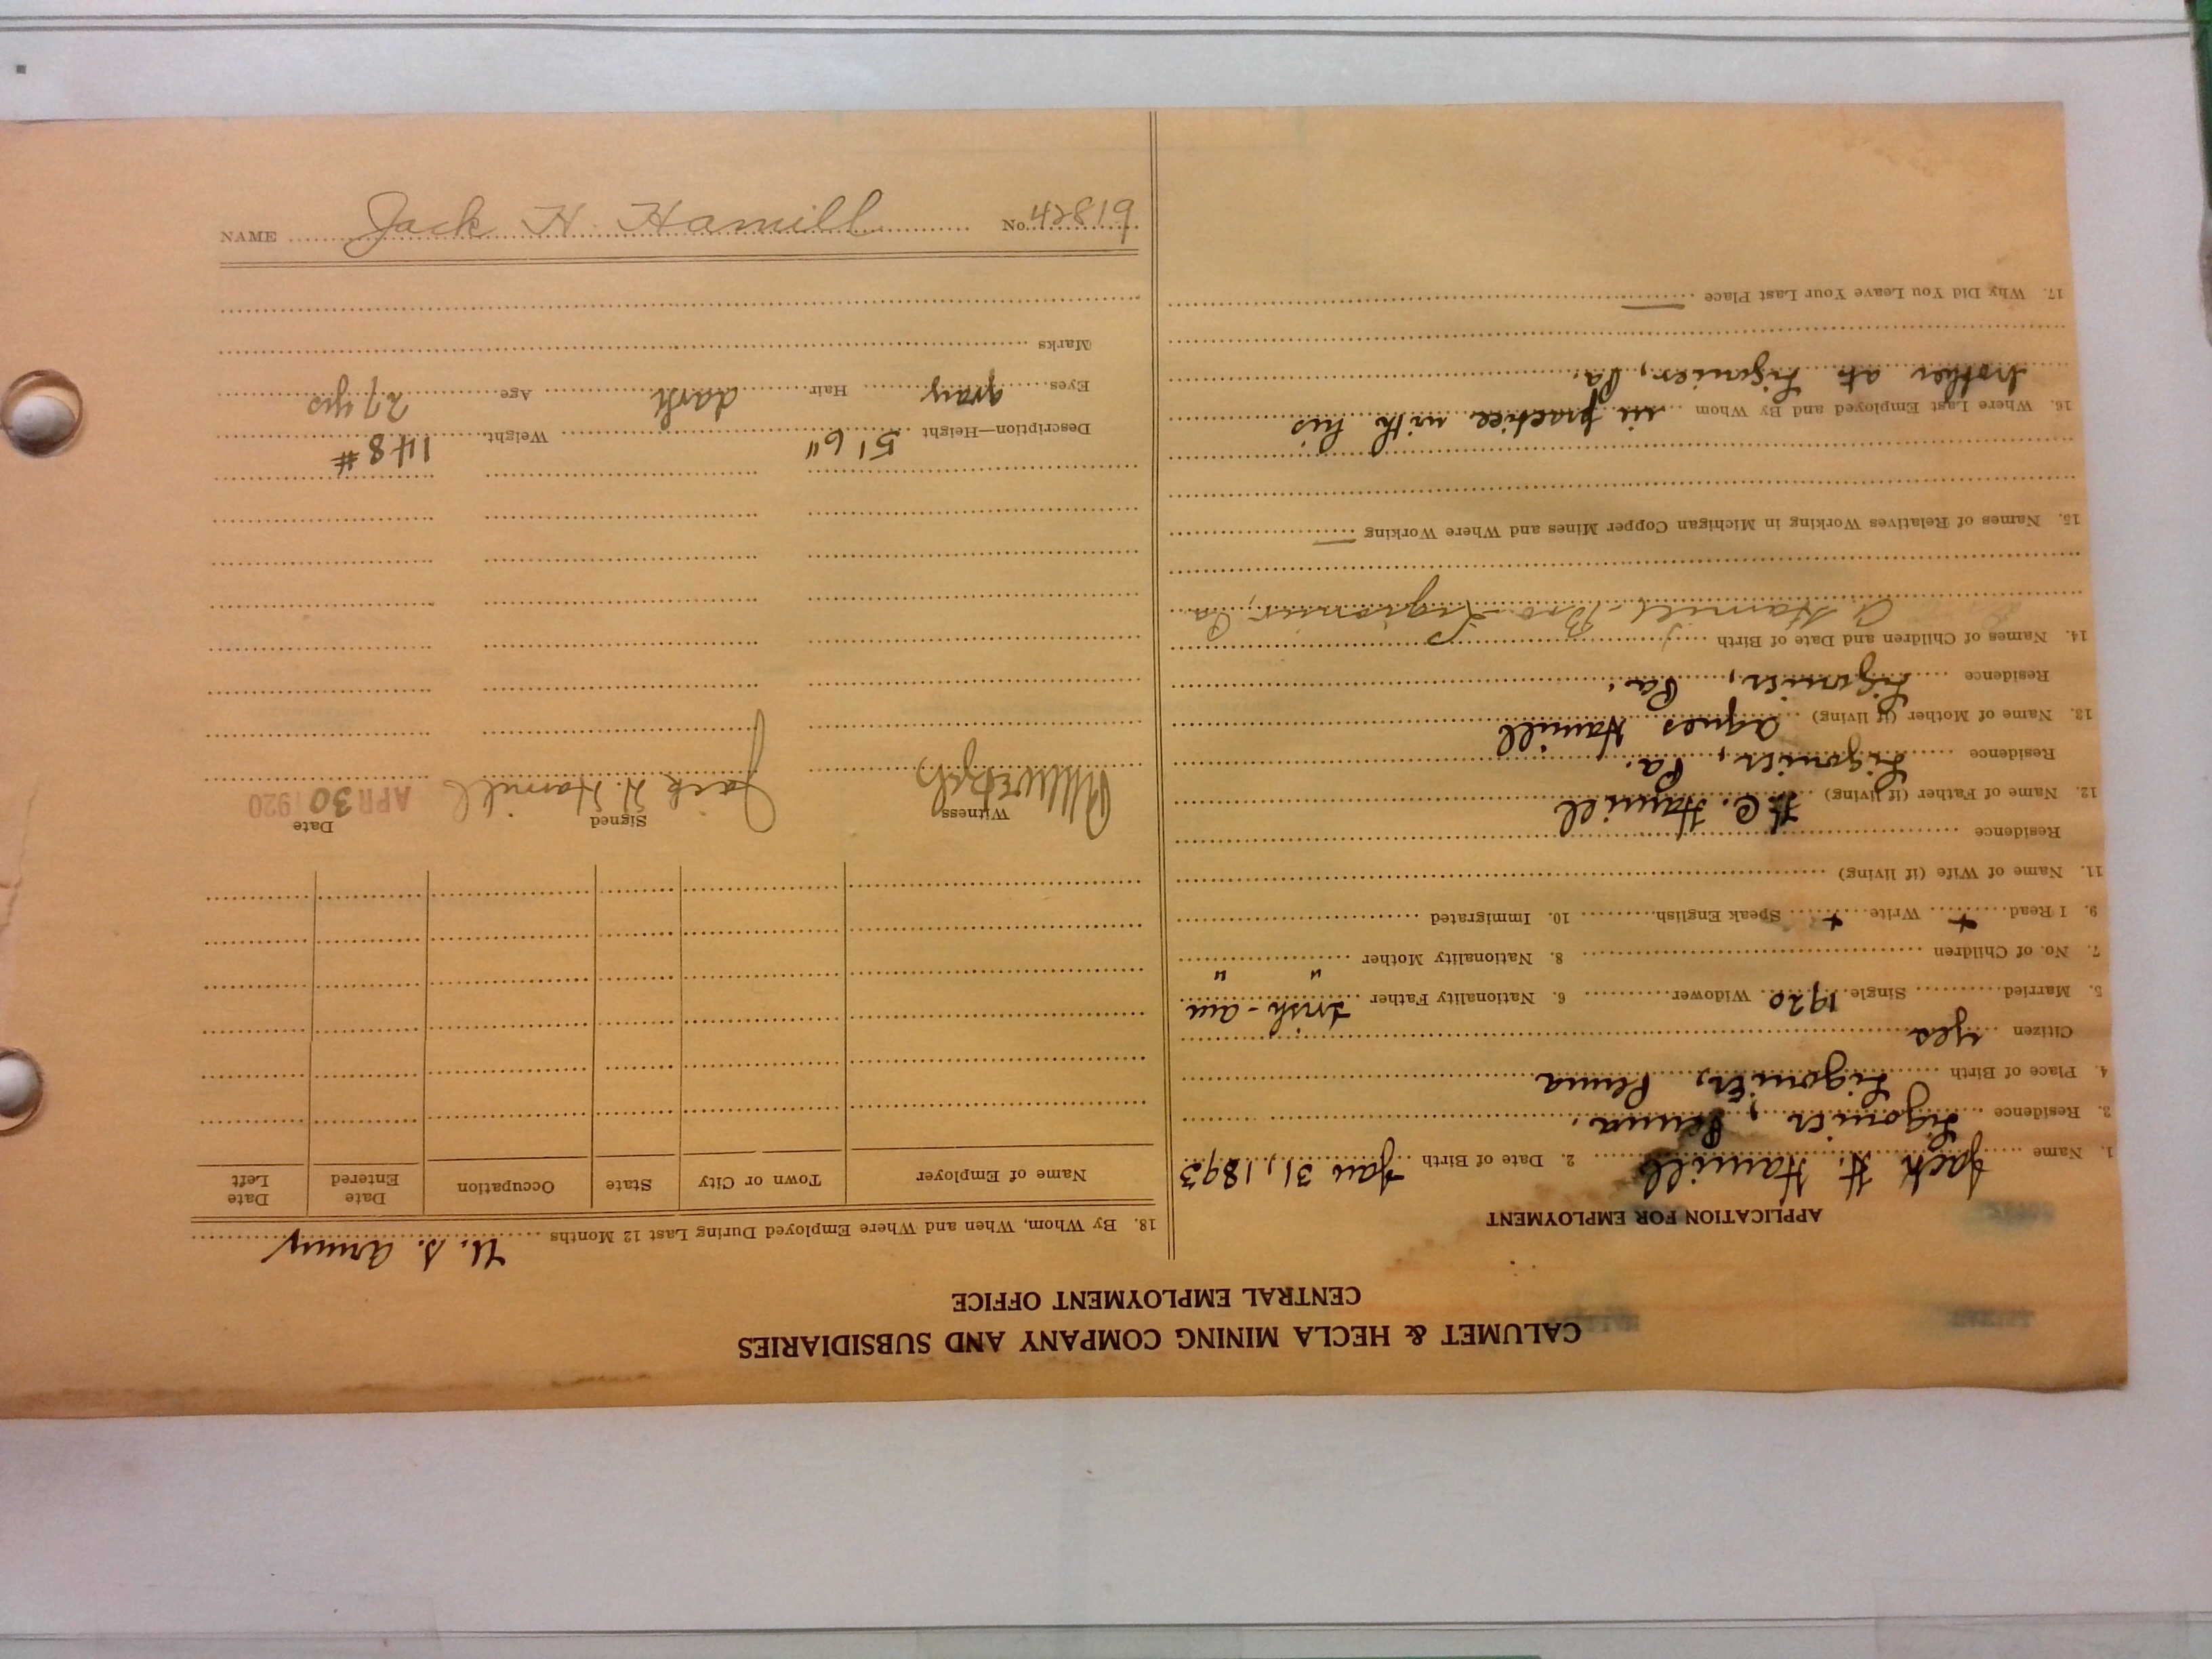 CALUMET & HECLA MINING COMPANY AND SUBSIDIARIES
CENTRAL EMPLOYMENT OFFICE
APPLICATION FOR EMPLOYMENT
1. Name Jack H. Hamill 2. Date of Birth Jan 31, 1893
3. Residence Ligonier, Penna.
4. Place of Birth Ligonier, Penna
Citizen yes
5. Married Single 1920 Widower 6. Nationality Father Irish-am
7. No. of Children 8. Nationality Mother " "
9. I Read + Write + Speak English 10. Immigrated
11. Name of Wife (if living)
Residence
12. Name of Father (if living) H.C. Hamill
Residence Ligonier, Pa.
13. Name of Mother (if living) Agnes Hamill
Residence Ligonier, Pa.
14. Names of Children and Date of Birth
C. Hamill - Bro - Ligonier, Pa
15. Names of Relatives Working in Michigan Copper Mines and Where Working —
16. Where Last Employed and By Whom in practice with his
brother at Ligonier, Pa.
17. Why Did You Leave Your Last Place —
18. By Whom, When and Where Employed During Last 12 Months U. S. Army
Name of Employer Town or City State Occupation Date Entered Date Left
Witness Signed Date
Jack H. Hamill APR 30 1920
Description—Height 5' 6" Weight 148 #
Eyes gray Hair dark Age 27 yrs
Marks
NAME Jack H. Hamill No. 42819